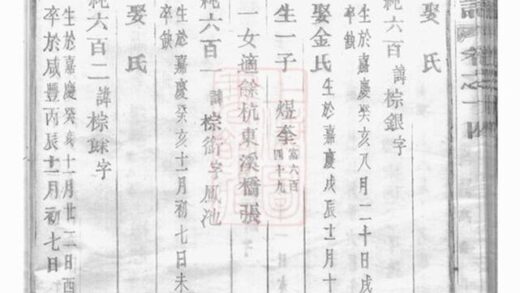 娶 氏
純六百 諱棕銀字
生於嘉慶癸亥八月二十日戌
卒缺
娶金氏 生於嘉慶戊辰十二月十
生一子 煜奎 富六百四十九
一女適餘杭東溪橋張
純六百一 諱棕衛字鳳池
生於嘉慶癸亥十一月初七日未
卒缺
娶 氏
純六百二 諱棕字
生於嘉慶癸亥十一月廿二日酉
卒於咸豐丙辰十二月初七日